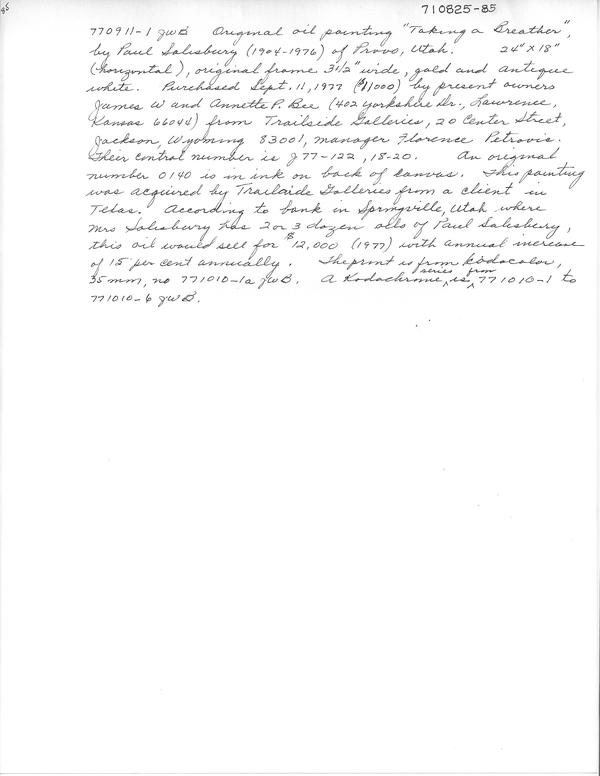 710825-85
770911-1 JWB Original oil painting "Taking a Breather",
by Paul Salisbury (1904-1976) of Provo, Utah. 24" X 18"
(horizontal), original frame 3 1/2" wide, gold and antique
white. Purchased Sept. 11, 1977 ($1000) by present owners
James W and Annette P. Bee (402 Yorkshire Dr., Lawrence,
Kansas 66044) from Trailside Galleries, 20 Center Street,
Jackson, Wyoming 83001, manager Florence Petrovis.
Their control number is J77-122, 18-20. An original
number 0140 is in ink on back of canvas. This painting
was acquired by Trailside Galleries from a client in
Texas. According to bank in Springville, Utah where
Mrs Salisbury has 2 or 3 dozen oils of Paul Salesbury,
this oil would sell for $12,000 (1977) with annual increase
of 15 per cent annually. The print is from kodacolor,
35 mm, no 771010-1a JWB. A Kodachrome series, is from 771010-1 to
771010-6 JWB.